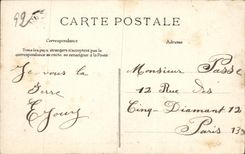 92
CARTE POSTALE
Correspondance
Tous les pays étrangers n'acceptent pas la
correspondance au recto, se renseigner à la Poste
Adresse
Je vous la
serre
E Joury
Monsieur Passe
12 Rue des
Cinq-Diamant 12
Paris 13